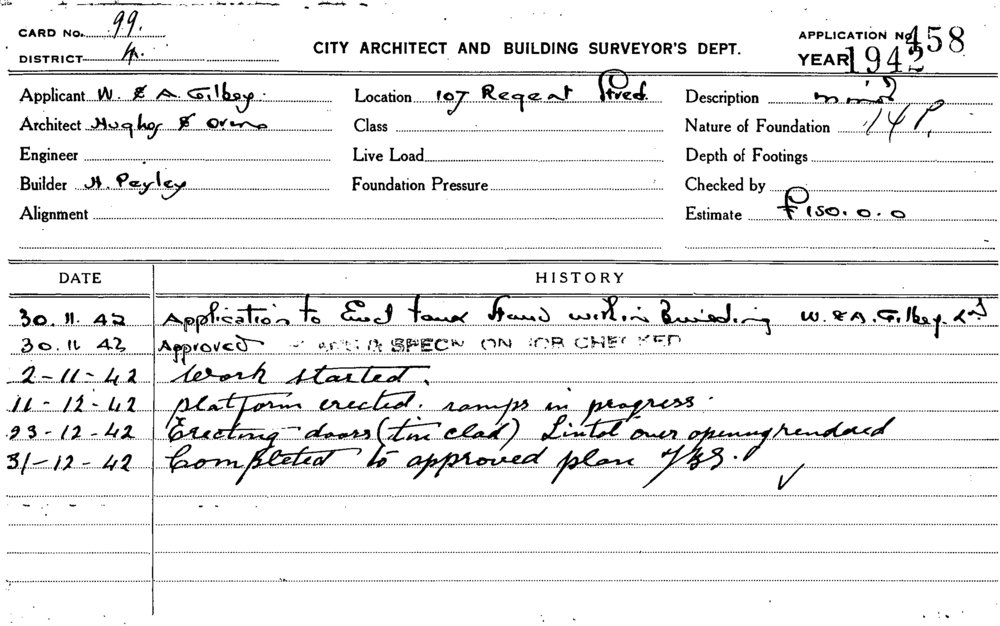 CARD No. 99.
DISTRICT 4.
CITY ARCHITECT AND BUILDING SURVEYOR'S DEPT.
APPLICATION No. 458
YEAR 1942
Applicant W. & A. Gilbey.
Location 107 Regent Street.
Description
Architect Hughes & Orme
Class
Nature of Foundation 141
Engineer
Live Load
Depth of Footings
Builder H. Peyley
Foundation Pressure
Checked by
Alignment
Estimate £150.0.0
DATE HISTORY
30.11.42 Application to Erect tank stand within Building W. & A. Gilbey. Ld
30.11.42 Approved SPECN ON JOB CHECKED
2-11-42 Work started.
11-12-42 platform erected. ramps in progress.
23-12-42 Erecting doors (tin clad) Lintol over opening rendered
31-12-42 Completed to approved plan